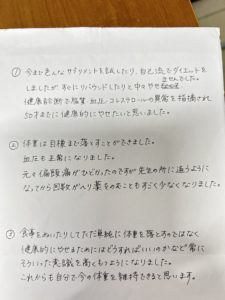 ① 今まで色んなサプリメントを試したり、自己流でダイエットを
しましたがすぐにリバウンドしたりと中々やせませんでした。
健康診断で脂質・血圧・コレステロールの異常を指摘され
50才までに健康的にやせたいと思いました。
② 体重は目標まで落とすことができました。
血圧も正常になりました。
元々偏頭痛がひどかったのですが先生の所に通うように
なってから回数が減り薬をのむこともすごく少なくなりました。
③ 食事をぬいたりしてただ単純に体重を落とすのではなく
健康的にやせるためにはどうすればいいのかなど常に
そういった意識を高くもつようになりました。
これからも自分で今の体重を維持できると思います。